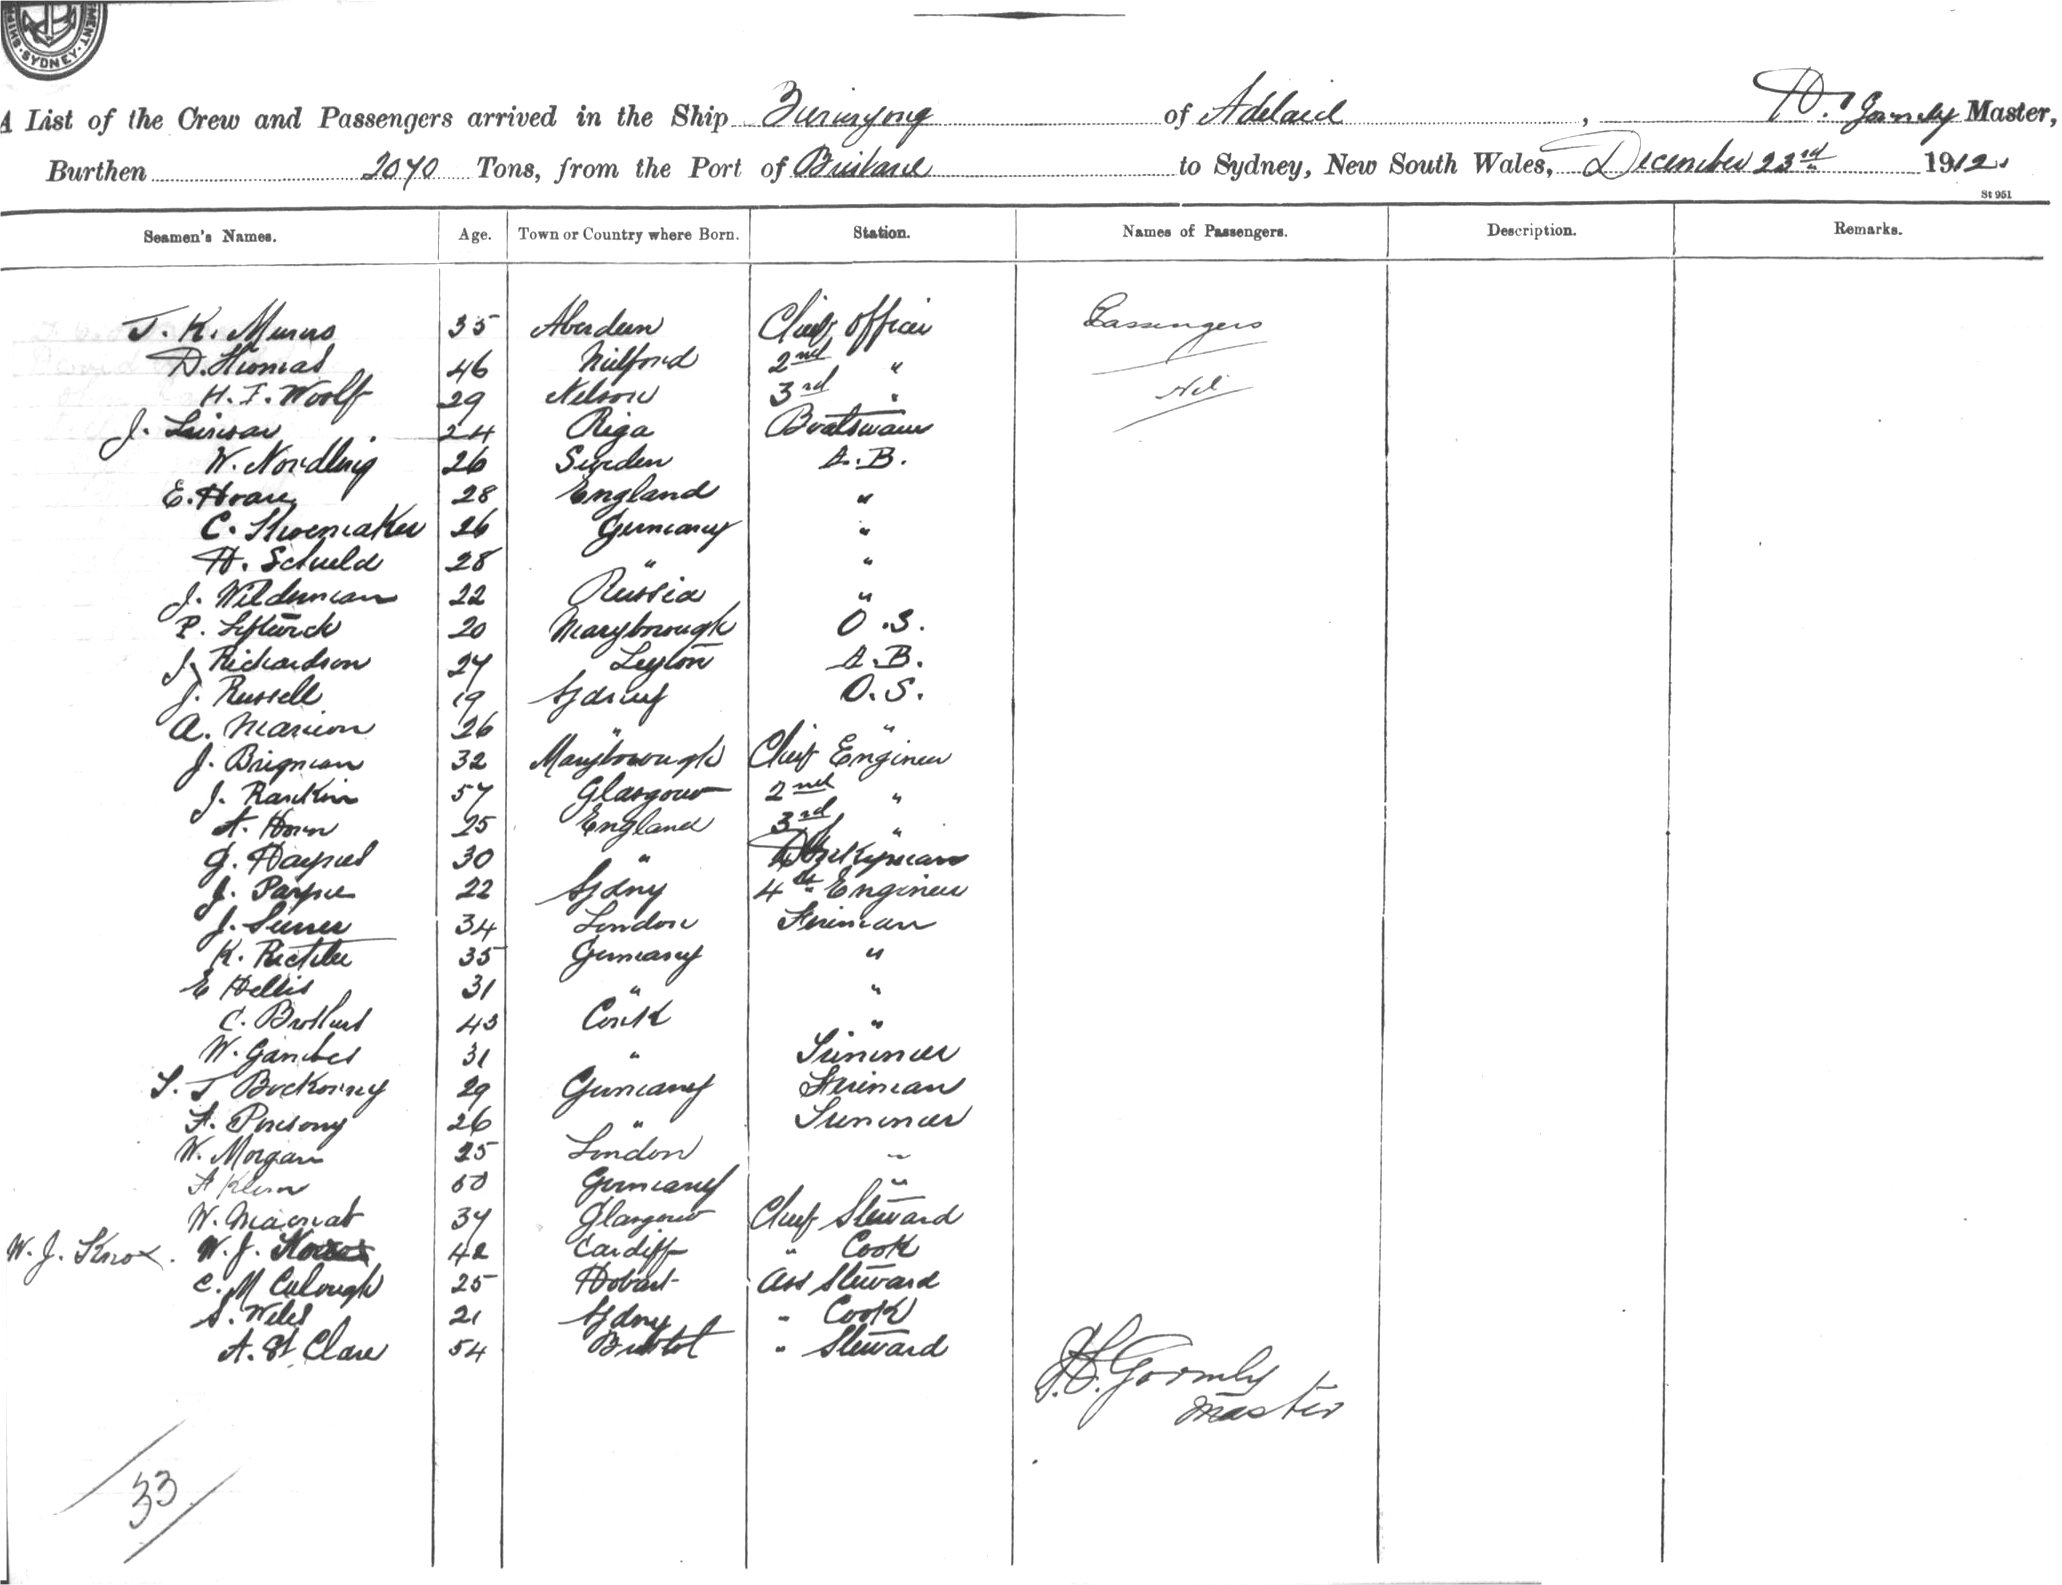 SHIP MENT · SYDNEY ·
A List of the Crew and Passengers arrived in the Ship of Adelaid, Gormly Master,
Burthen 2070 Tons, from the Port of Brisbane to Sydney, New South Wales, December 23rd 1912.
St 951
Seamen's Names. Age. Town or Country where Born. Station. Names of Passengers. Description. Remarks.
J. K. Munro 35 Aberdeen Chief Officer Passengers
D. Thomas 46 Milford 2nd "
H. I. Woolf 29 Nelson 3rd " Nil
J. 24 Riga Boatswain
W. Nordling 26 Sweden A.B.
E. Hoare 28 England "
C. Shoemaker 26 Germany "
H. Scheeld 28 " "
J. Wilderman 22 Russia "
P. 20 Maryborough O.S.
J. Richardson 27 Leyton A.B.
J. Russell 19 Sydney O.S.
A. Marion 26 " "
J. Brigman 32 Maryborough Chief Engineer
J. Rankin 57 Glasgow 2nd "
A. Horn 25 England 3rd "
G. Haynes 30 " Donkeyman
J. Payne 22 Sydny 4th Engineer
J. 34 London Fireman
K. 35 Germany "
E Hellis 31 " "
C. Brothers 43 Cork "
W. Gambes 31 " Trimmer
29 Germany Fireman
F. 26 " Trimmer
W. Morgan 25 London "
F Klein 50 Germany "
W. Macnab 37 Glasgow Chief Steward
W. J. Knox. W. J. 42 Cardiff " Cook
C. McCulough 25 Hobart Ass Steward
S. Wiles 21 Sydny " Cook
A. St Clare 54 Bristol " Steward
Gormly
Master
33